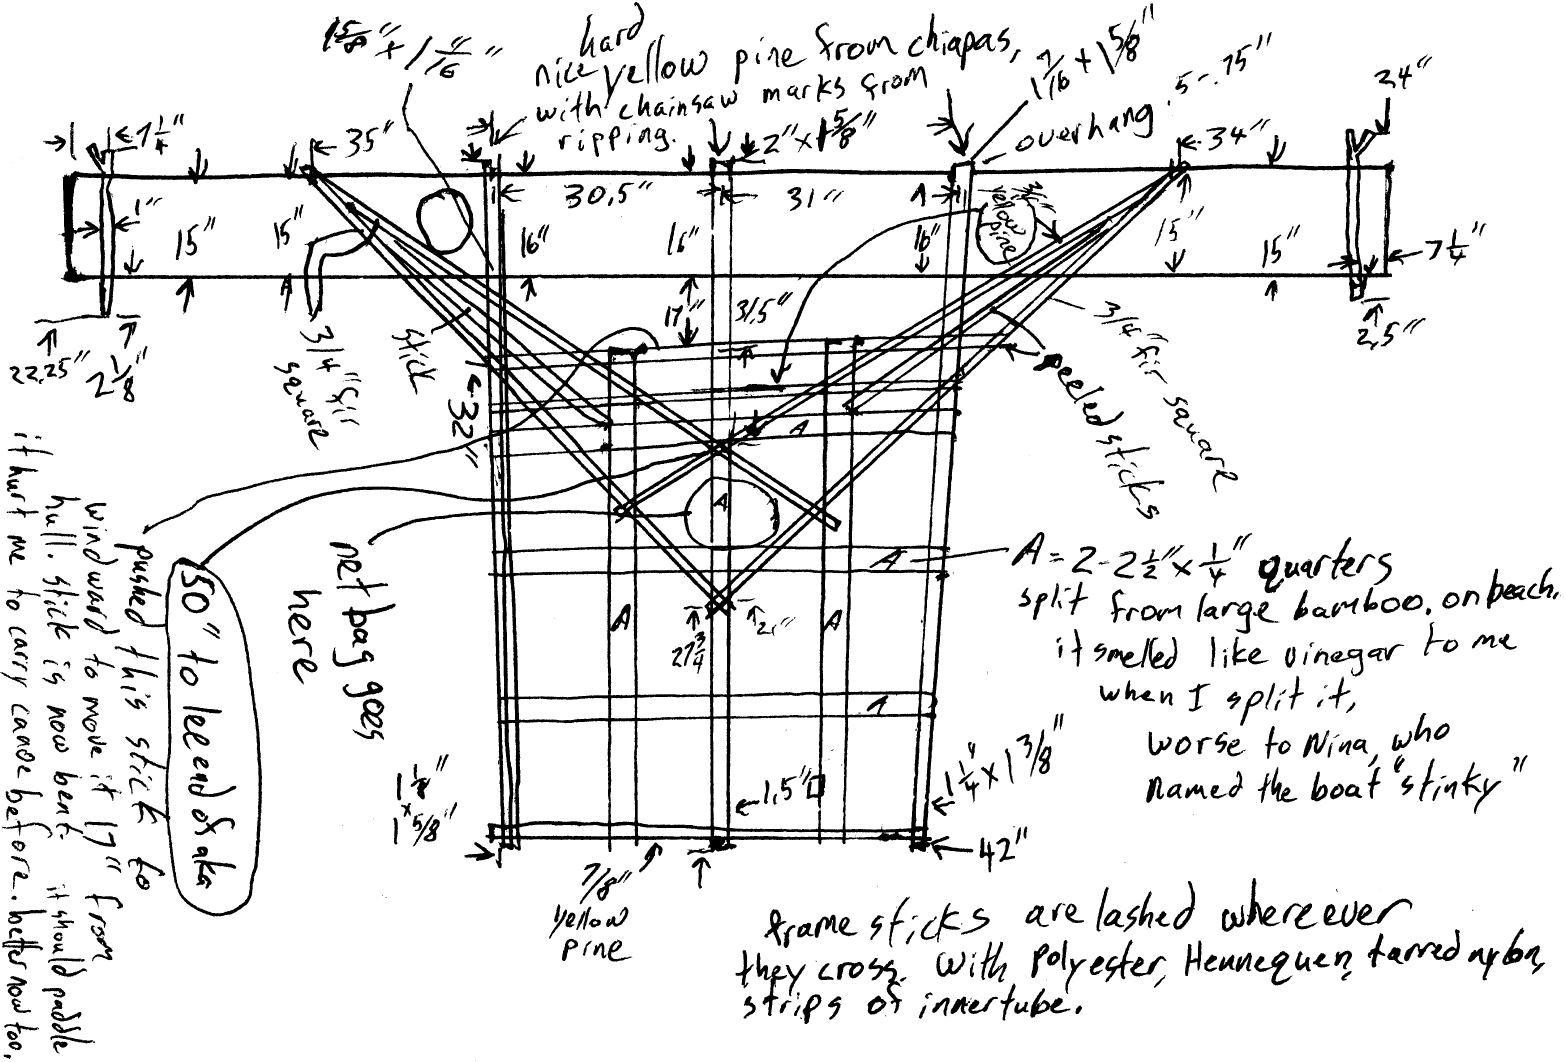 1 5/8" x 1 11/16"
hard
nice yellow pine from chiapas,
with chainsaw marks from
ripping.
1 7/16 + 1 5/8"
overhang .5-.75"
24"
7 1/4"
35"
2" x 1 5/8"
34"
30.5"
31"
3/4"
yellow
pine
1"
15"
15"
16"
16"
16"
15"
15"
7 1/4"
17"
31.5"
22.25"
2 1/8"
3/4" fir
square
stick
32"
3/4" fir square
peeled sticks
2.5"
A
A
A
A
A
A
A
27 3/4
net bag goes
here
50" to lee end of aka
pushed this stick to
windward to move it 17" from
hull. stick is now bent. it should paddle
it hurt me to carry canoe before. better now too.
A = 2-2 1/2" x 1/4" quarters
split from large bamboo. on beach.
it smelled like vinegar to me
when I split it,
worse to Nina, who
named the boat "stinky"
1 1/8"
x
1 5/8"
1.5"□
1 1/4" x 1 3/8"
42"
7/8"
yellow
pine
frame sticks are lashed whereever
they cross. with polyester, Hennequen, tarred nylon,
strips of innertube.